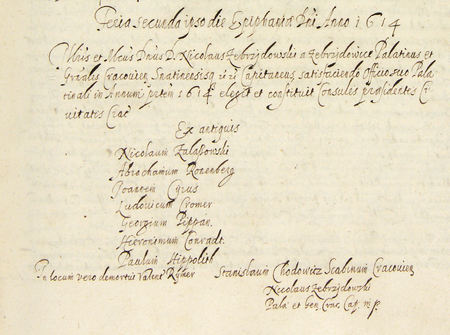 Feria secunda ipso die Epiphaniæ Dni Anno 1614
Illris et Mcus Dnus D. Nicolaus Zebrzidowski a Zebrzidowice Palatinus et
Gnalis Cracovien Sniatinensisq Capitaneus, satisfaciendo Officio suo Pala
tinali in Annum pntem 1614 elegit et constituit Consules præsidentes Ci
vitates Crac
Ex antiquis
Nicolaum Zalaszowski
Abrahamum Ronenberg
Joannem Cyrus
Ludovicum Cromer
Georgium Pippan.
Hieronimum Conradt.
Paulum Hippolith
In locum vero demortui Valent Rymer Stanislaum Chodowitz Scabinum Cracovien
Nicolaus Zebrzidowski
Pala et Gen. Crac. Cap. mp.